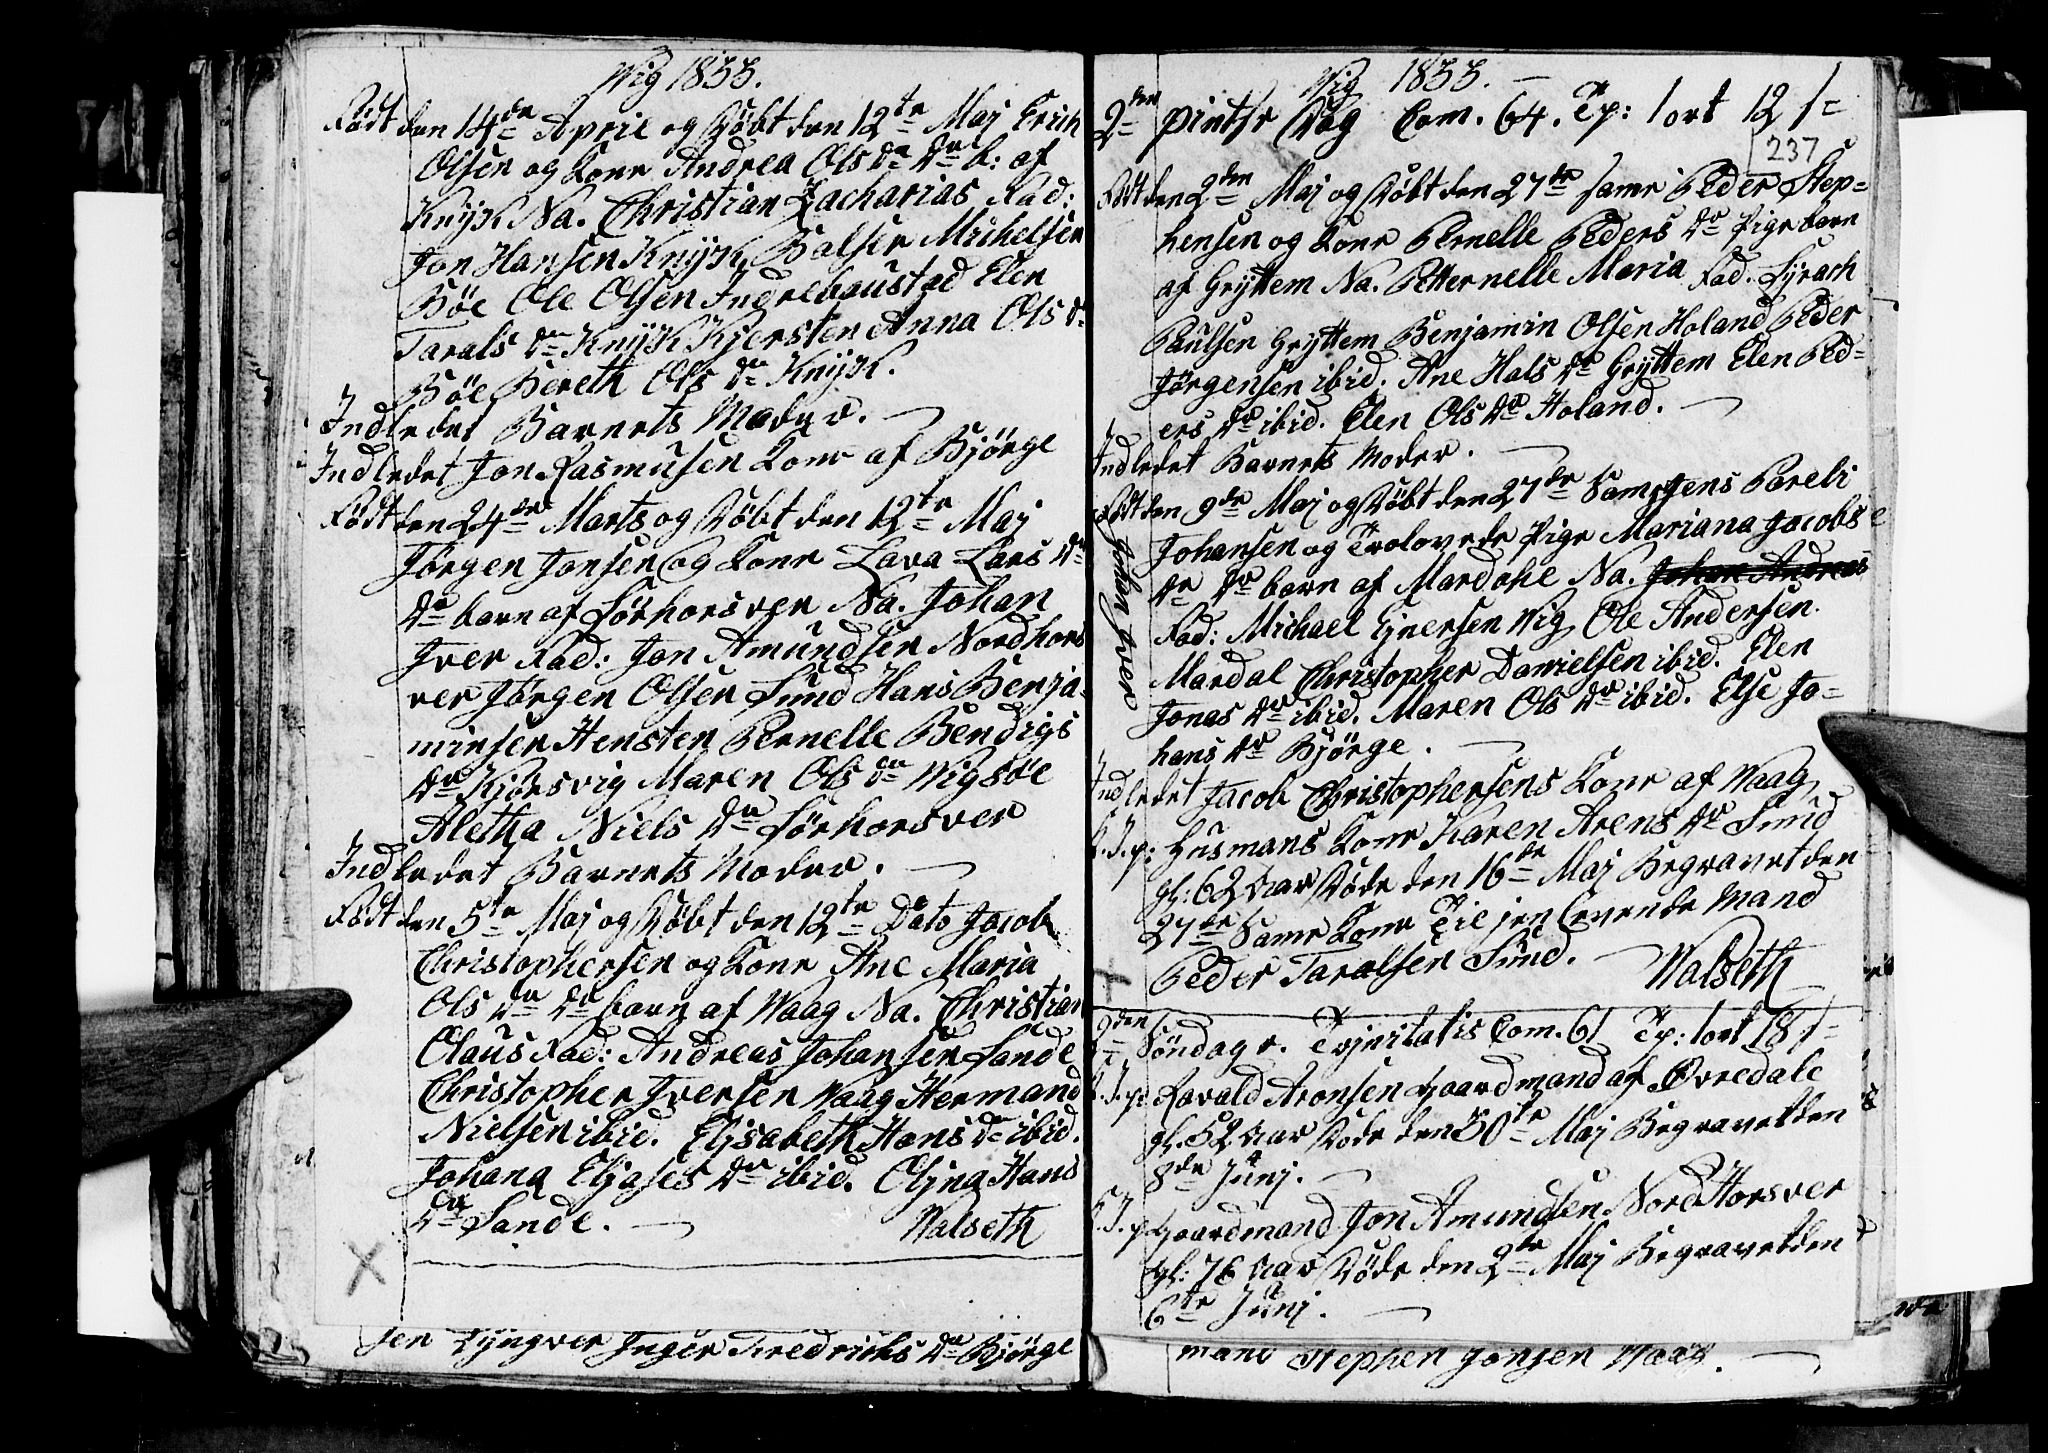 Wig 1833.
Født den 14de April og Døbt den 12te Maj Erich
Olsen og Kone Andrea Ols dr dr b: af
Knijk Na. Christian Zacharias Fad:
Jon Hansen Knijk Balser Michelsen
Bøe Ole Olsen Indrehaustad Elen
Tarals dr Knijk Kjersten Anna Ols dr
Bøe Bereth Ols dr Knijk.
Indledet Barnets Moder.
Indledet Jon Rasmusen Kone af Bjørge
Født den 24de Marts og Døbt den 12te Maj
Jørgen Jonsen og Kone Lava Lars dr
dr barn af Sørhorsver Na. Johan
Iver Fad: Jon Amundsen Nordhors
ver Jørgen Olsen Sund Hans Benja-
minsen Hensten Pernelle Bendigs
dr Kjørsvig Maren Ols dr Wigsøe
Aletha Niels dr Sørhorsver
Indledet Barnets Moder.
Født den 5te Maj og Døbt den 12te Dato Jacob
Christophersen og Kone Ane Maria
Ols dr dr barn af Waag Na. Christian
Olaus Fad: Andreas Johansen Sande
Christopher Iversen Waag Hermand
Nielsen ibid. Elisabeth Hans dr ibid.
Johana Eljases dr ibid. Oljna Hans
dr Sande.
Walseth
X
sen Lyngver Inger Fredrichs dr Bjørge
Wig 1833.
2den pintse Dag Com. 64. Tp: 1 ort 12 s
237
Født den 2den Maj og Døbt den 27de same Peder Step-
hensen og Kone Pernelle Peders dr Pige barn
af Gryttem Na. Petternelle Maria Fad. Syrach
Paulsen Gryttem Benjamin Olsen Holand Peder
Jørgensen ibid. Ane Hals dr Gryttem Elen Ped-
ers dr ibid. Elen Ols dr Holand.
Indledet Barnets Moder.
Født den 9de Maj og Døbt den 27de Samestens Pareli
Johansen og Trolovede Pige Mariana Jacobs
dr dr barn af Mardahl Na. Johan Andreas
Johan Iver
Fad: Michael Ejnersen Wig Ole Andersen
Mardal Christopher Danielsen ibid. Elen
Jonas dr ibid. Maren Ols dr ibid. Else Jo-
hans dr Bjørge.
Indledet Jacob Christophersens Kone af Waag
S. J. p: Husmans Kone Karen Arens dr Sund
gl: 62 Aar Døde den 16de Maj Begravet den
27de Same Kone Til jen Levende Mand
Peder Taralsen Sund.
Walseth
2den Søndag e. Trjnitatis Com. 61 Tp: 1 ort 18 s
S. J. p: Ravald Aronsen Gaardmand af Øvredale
gl. 52 Aar Døde den 30te Maj Begravet den
8de Junj.
S. J. p Gaardmand Jon Amundsen Nord Horsver
gl: 76 Aar Døde den 2de Maj Begravet den
6te Junj.
mand Stephen Jonsen Waag.